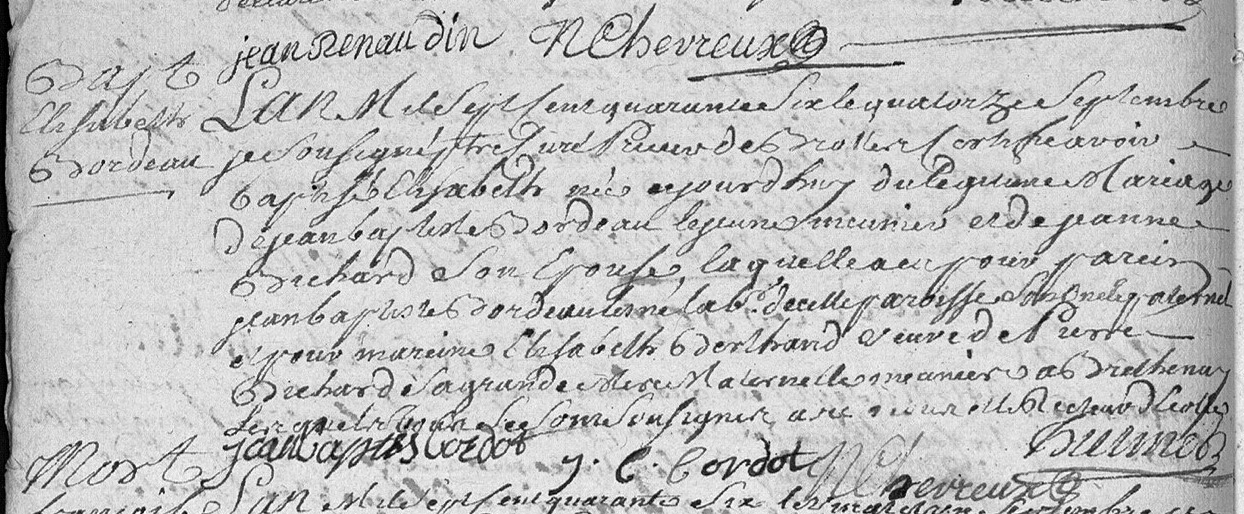 jean Renaudin N Chevreux
Bapt
Elisabeth
Bordeau
Lan Mil Sept Cent quarante Six le quatorze Septembre
je Soussigné ptre Curé Prieur de Certifie avoir
baptisé Elisabeth née aujourdhuy du légitime Mariage
de jean baptiste Bordeau le jeune meunier et de jeanne
Brichard Son Epouse, laquelle a eu pour parein
jean baptiste Bordeau laisné lab.r de cette paroisse Son oncle paternel
et pour mareine Elisabeth Berthrand veuve de Pierre
Brichard Sa grande Mere Maternelle meunier a Brethenay
Lesquels Se Sont Sousignés avec nous et le Recteur d'Ecolle
jean baptis bordot j. C. Cordot N Chevreux
Mort
françoise Lan Mil Sept Cent quarante Six le